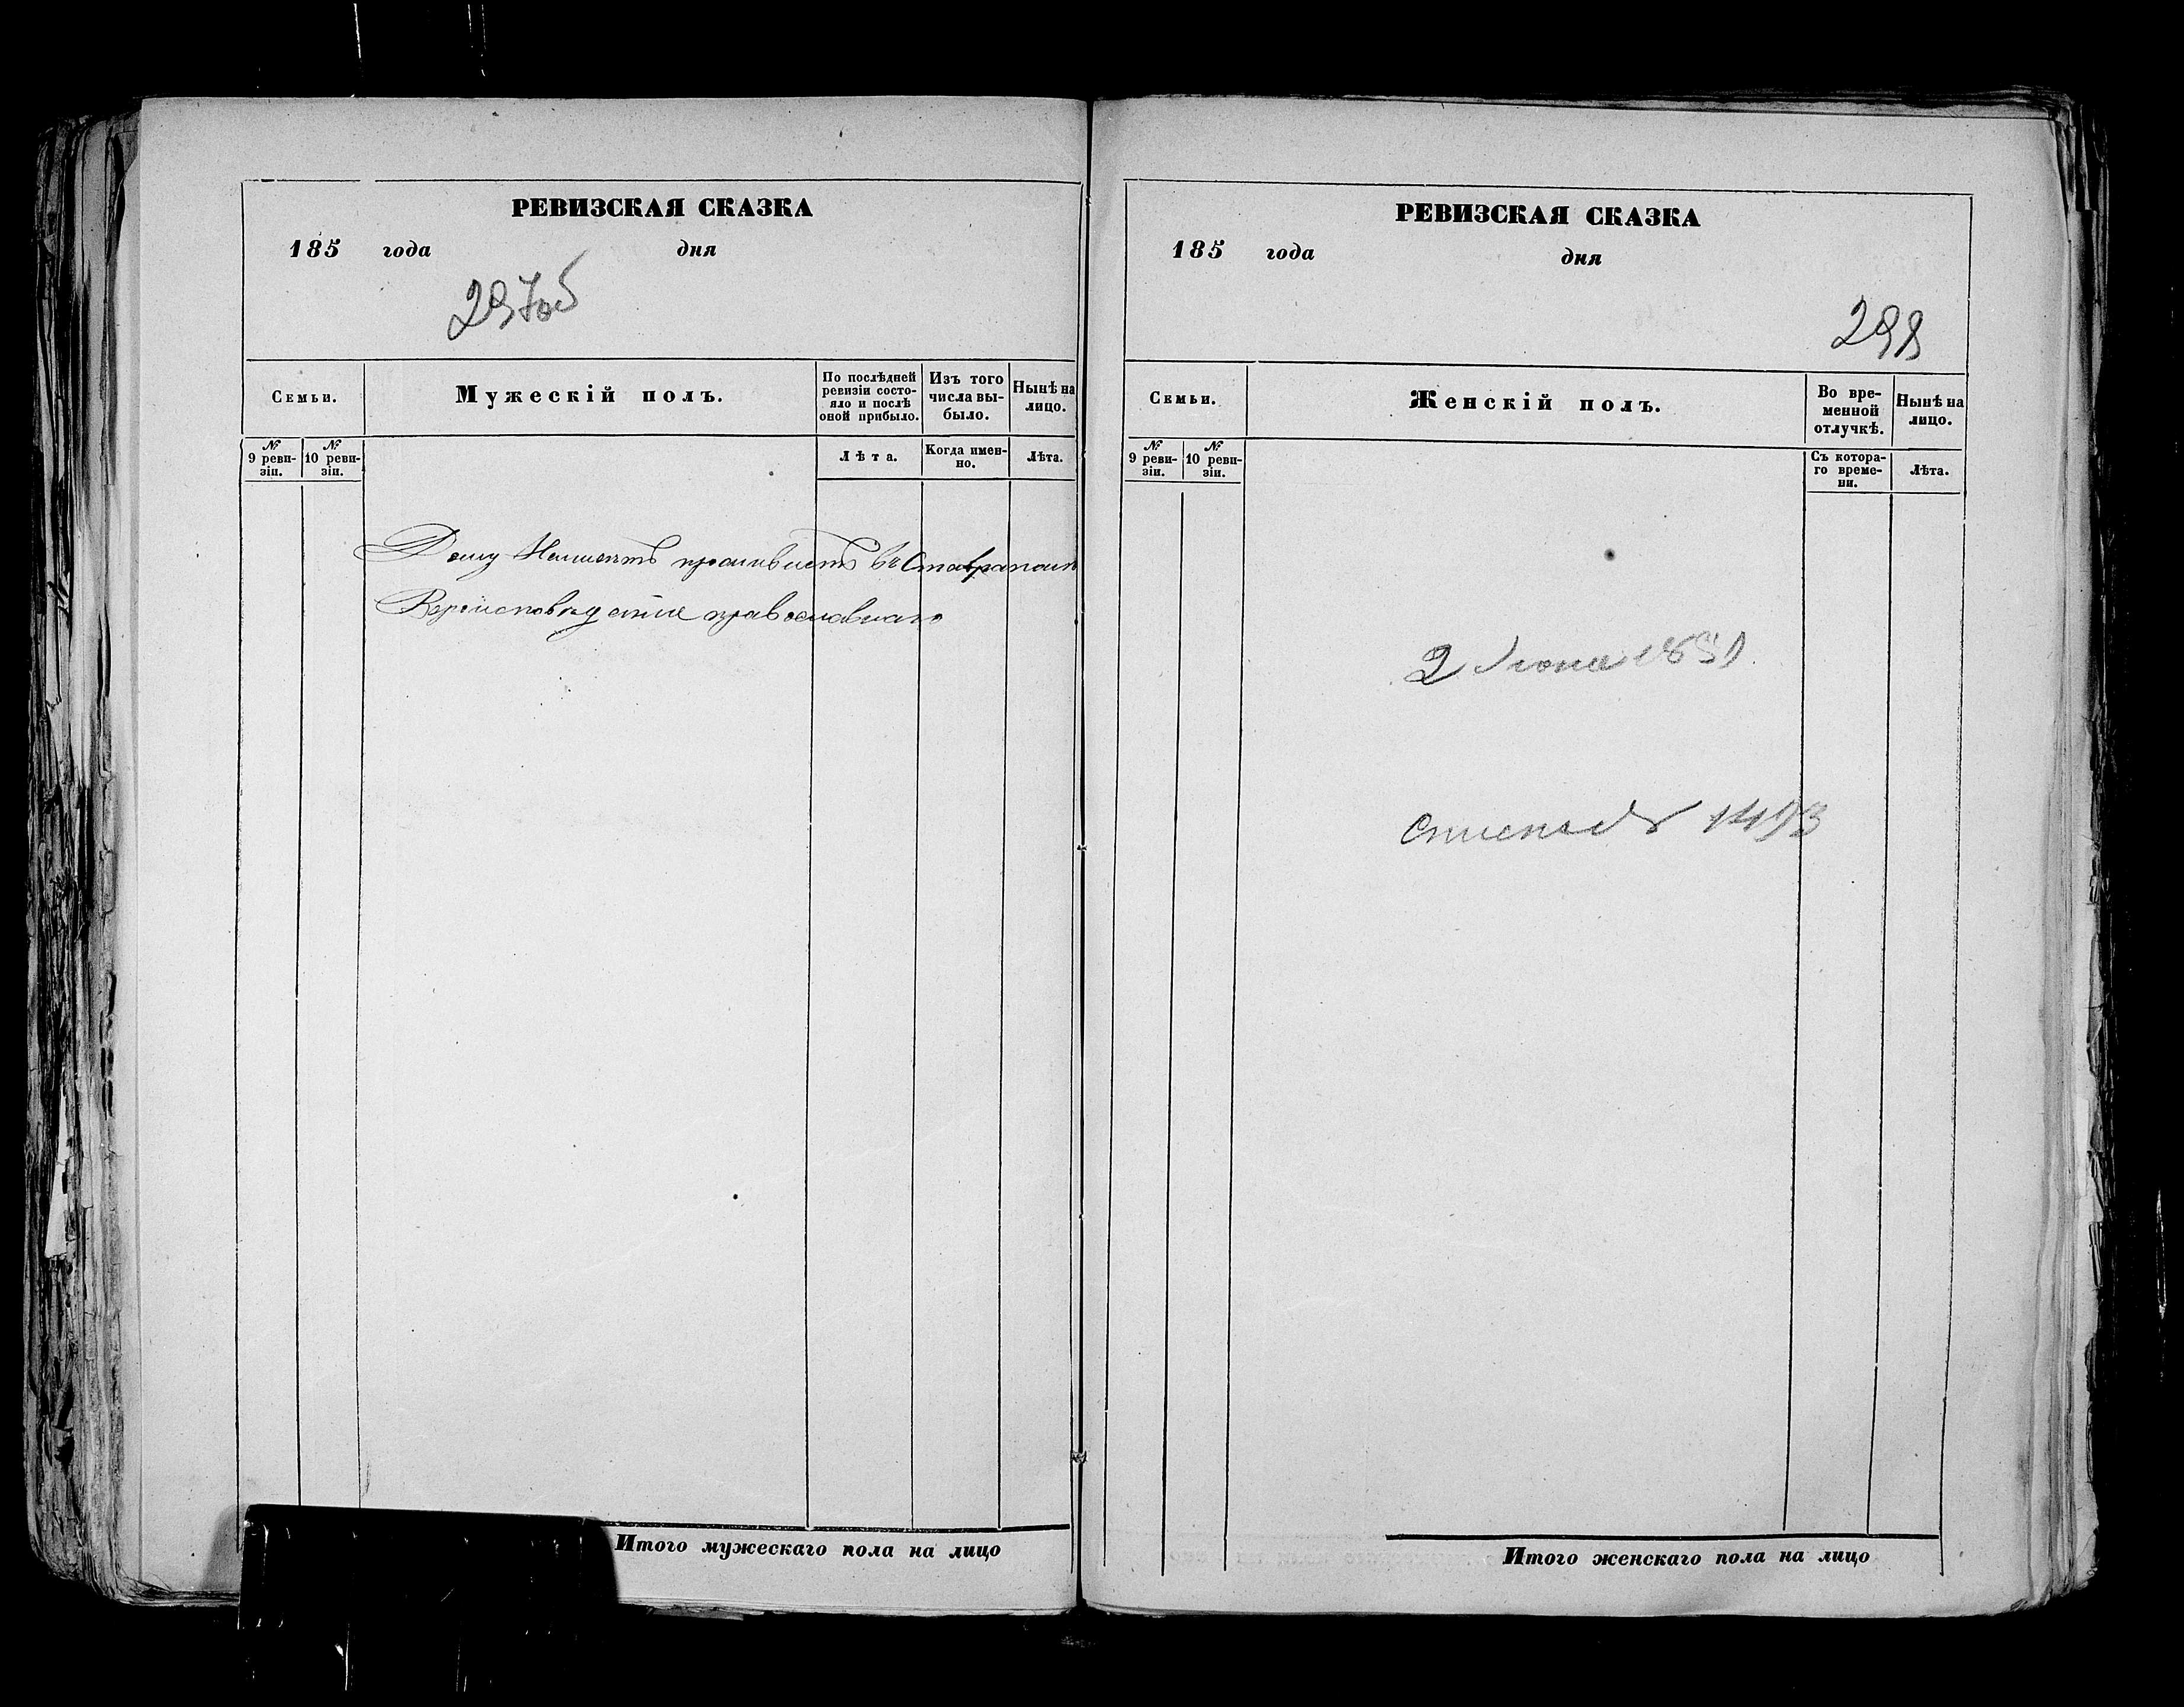 РЕВИЗСКАЯ СКАЗКА
185 года дня
297об
Семьи.
Мужескій полъ.
По послѣдней ревизіи состо-
яло и послѣ
оной прибыло.
Изъ того
числа вы-
было.
Нынѣ на
лицо.
№ 9 реви-
зіи.
№ 10 реви-
зіи.
Лѣта.
Когда имен-
но.
Лѣта.
Дому Неимеетъ проживаетъ въ Ставрополѣ
Вероисповеданія православнаго
Итого мужескаго пола на лицо
РЕВИЗСКАЯ СКАЗКА
185 года дня
298
Семьи.
Женскій полъ.
Во вре-
менной
отлучкѣ.
Нынѣ на
лицо.
№ 9 реви-
зіи.
№ 10 реви-
зіи.
Съ котора-
го време-
ни.
Лѣта.
2 Іюня 1851
Итого женскаго пола на лицо